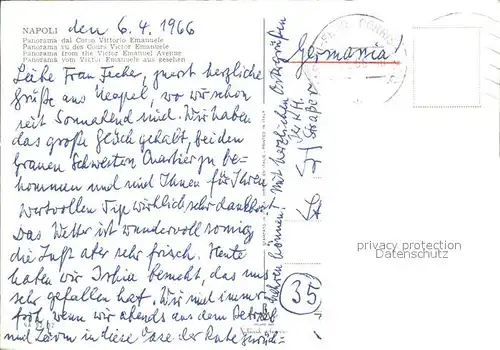 NAPOLI den 6.4.1966
Panorama dal Corso Vittorio Emanuele
Panorama vu des Cours Victor Emanuele
Panorama from the Victor Emanuel Avenue
Panorama vom Viktor Emanuele aus gesehen
Liebe Frau, zuerst herzliche
Grüße aus Neapel, wo wir schon
seit Sonnabend sind. Wir haben
das große Glück gehabt, bei den
Grauen Schwestern Quartier zu be-
kommen und sind Ihnen für Ihren
wertvollen Tip wirklich sehr dankbar.
Das Wetter ist wundervoll sonnig
die Luft aber sehr frisch. Heute
haben wir Ischia besucht, das uns
sehr gefallen hat. Wir sind immer
froh, wenn wir abends aus dem Betrieb
und Lärm in diese Oase der Ruhe zurück-
kehren können. Mit herzlichen Ostergrüßen
Germania!
Straße
35
privacy protection
Datenschutz